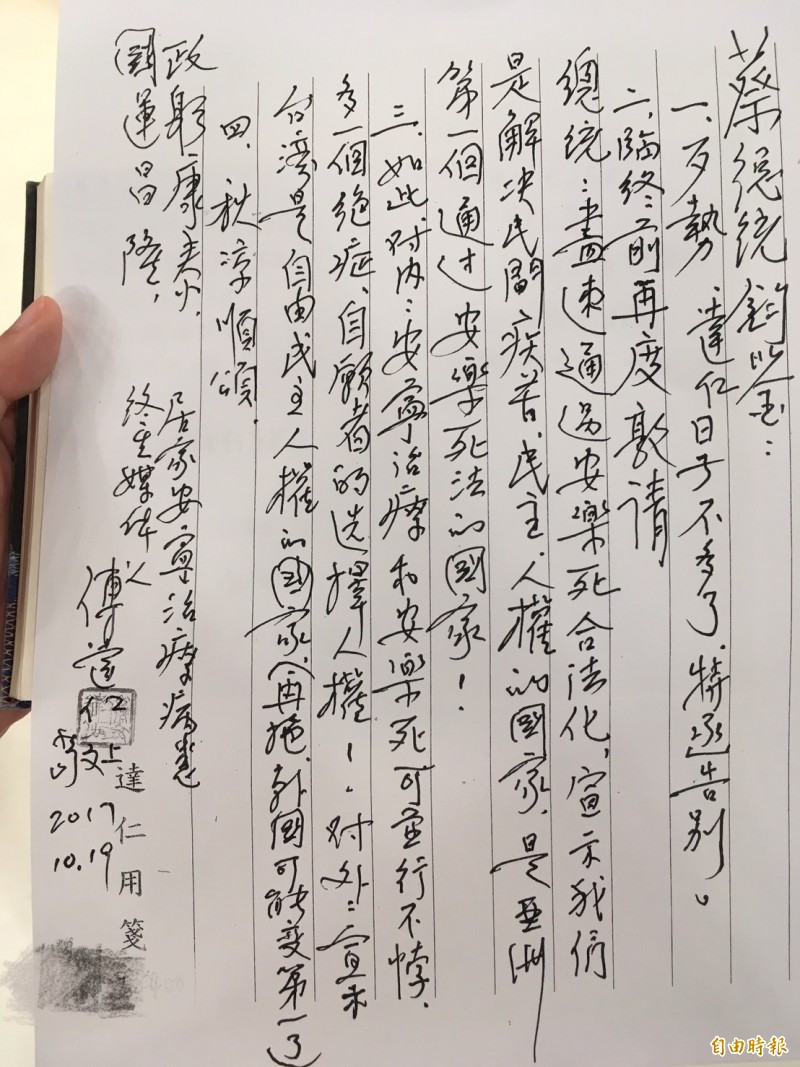 蔡總統鈞鑒:
一、歹勢 達仁日子不多了,特函告別。
二、臨終前再度敦請
總統:盡速通過安樂死合法化,宣示我们
是解决民間疾苦、民主、人權的國家、是亞洲
第一個通过安樂死法的國家!
三、如此对内:安寧治療和安樂死可並行不悖、
多一個绝症、自願者的选擇人權!对外:宣示
台湾是自由民主人權的國家(再拖,韩國可能变第一了)
四、秋凉順頌
政躬康泰,
國運昌隆,
居家安寧治療病患
終生媒体人
傅達仁 敬上
2017
10.19
達仁用箋
自由時報